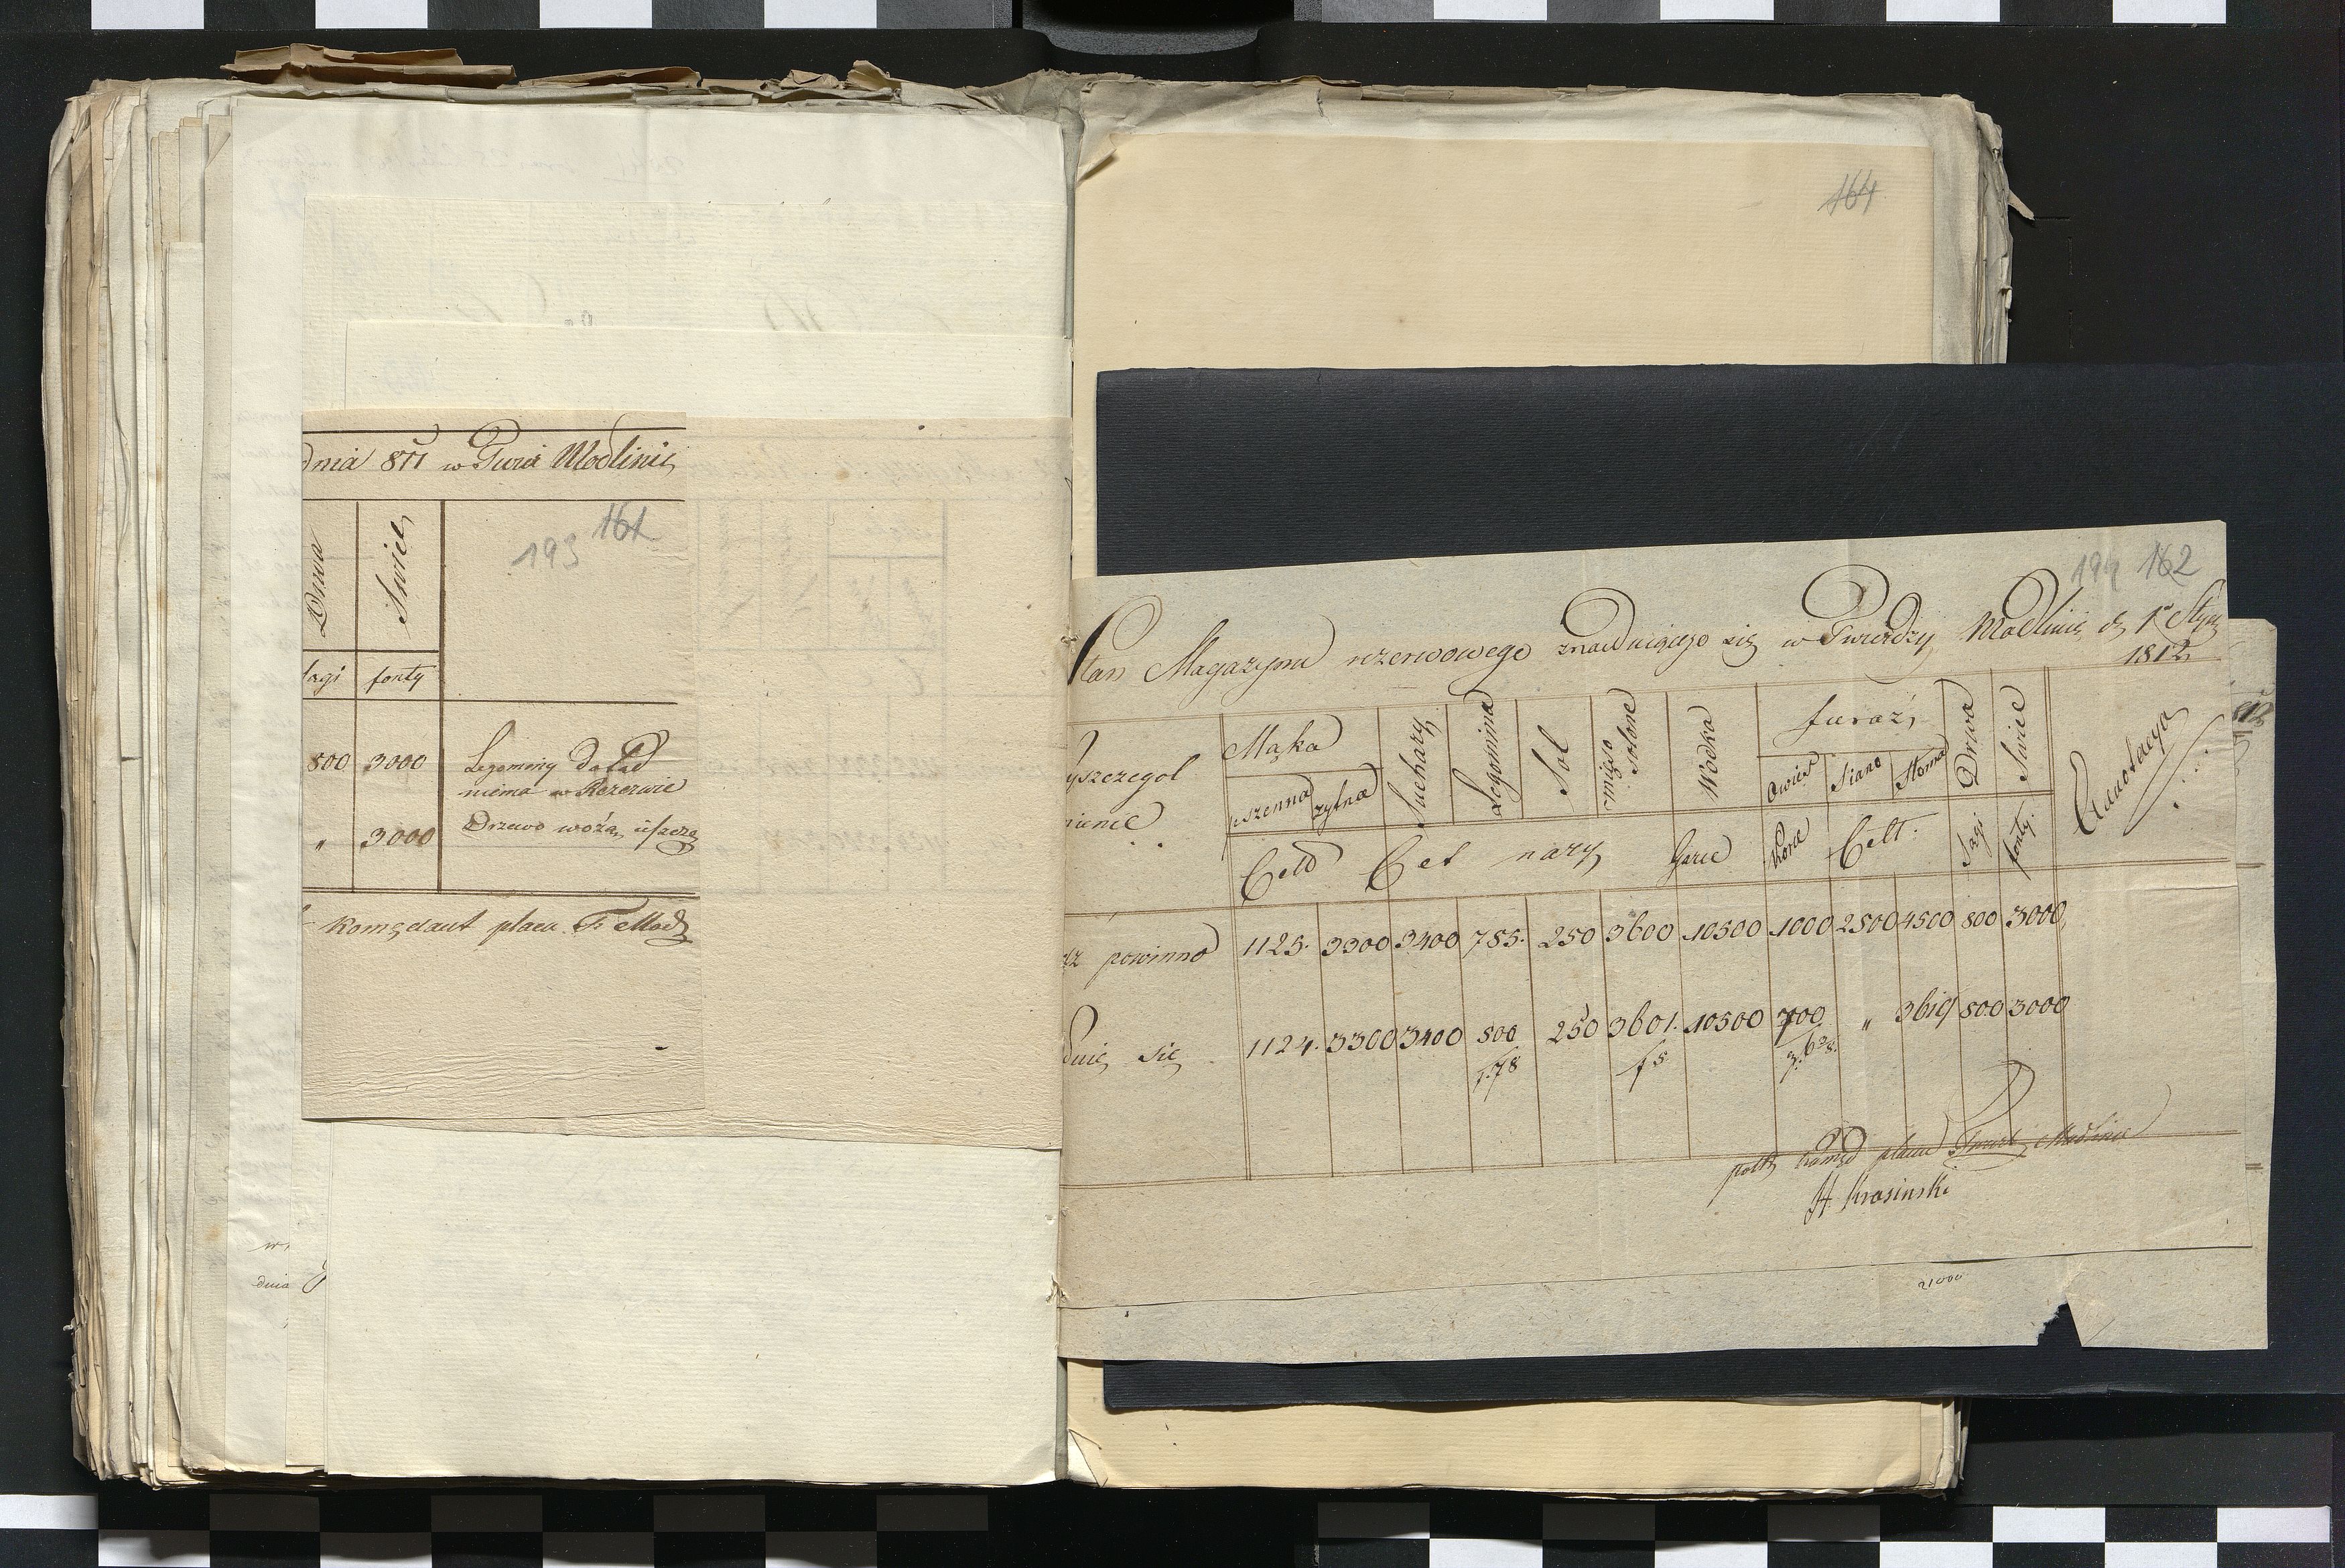 164
dnia 811 w Twier Modlinie
161
193
Drwa
Swiec
sagi fonty
800 3000
Legominy dotąd
niema w Rezerwie
" 3000
Drzewo wożą ieszcze
komędant placu
194 162
Stan Magazynu rezerwowego znayduiącego się w Twierdzy Modlinie d. 1o Stycz
1812
yszczegol
nienie
Mąka
pszenna
zytna
Suchary
Legomina
Sol
mięso solone
Wodka
furaż
Owies
Siano
Słoma
Drwa
Swiece
Annotacya
Cetn Cet nary Garce Korce Cett. Sagi fonty.
powinno 1125. 3300 3400 755. 250 3600 10500 1000 2500 4500 800 3000
duie się 1124. 3300 3400 500 250 3601. 10500 700 " 3619 800 3000
f. 78
f 5
połk Komęd placu Twierd Modlina
H Krasinski
21000
dnia